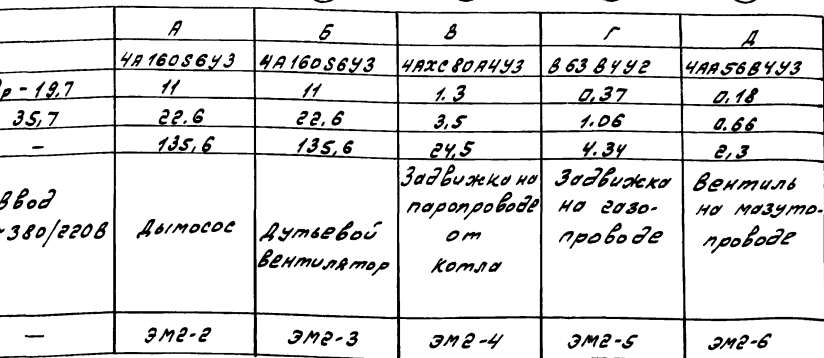 А Б В Г Д
4А160S6У3 4А160S6У3 4АХС80А4У3 В63В4У2 4АА56В4У3
р - 19,7 11 11 1.3 0,37 0,18
35,7 22.6 22,6 3,5 1.06 0.66
– 135,6 135,6 24,5 4.34 2,3
Ввод
~380/220В
Дымосос
Дутьевой
вентилятор
Задвижка на
паропроводе
от
котла
Задвижка
на газо-
проводе
Вентиль
на мазуто-
проводе
– ЭМ2-2 ЭМ2-3 ЭМ2-4 ЭМ2-5 ЭМ2-6